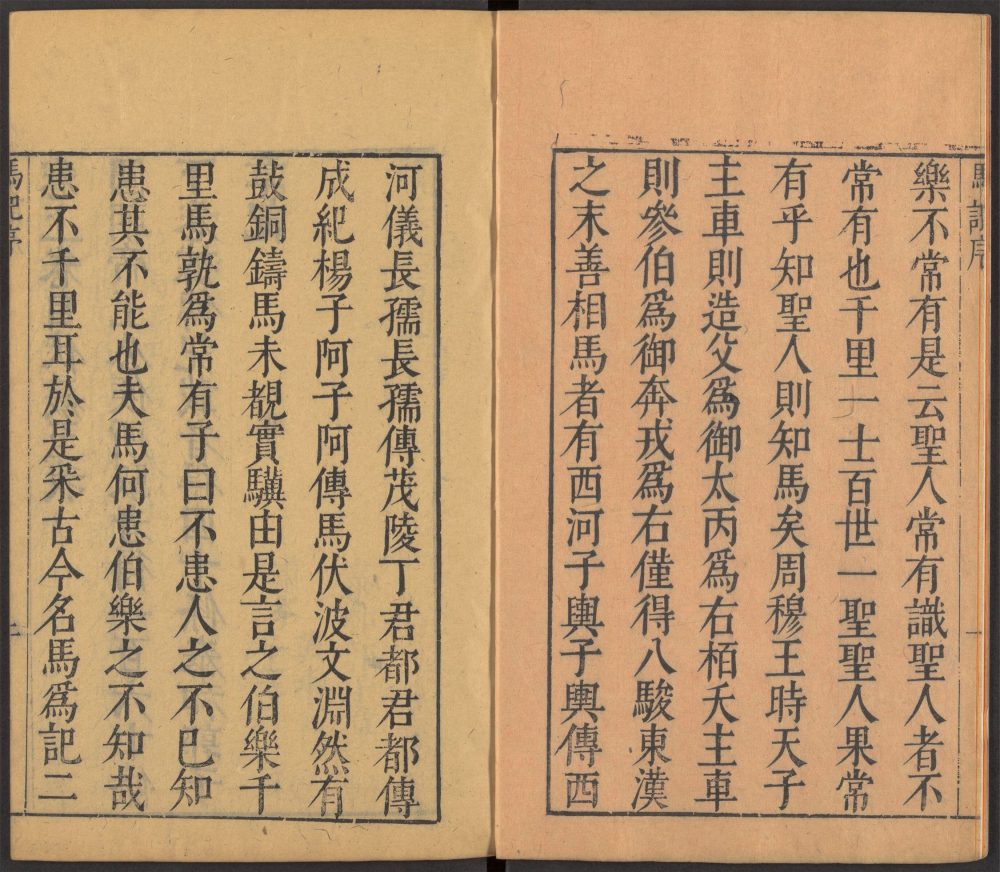 馬記序
一
樂不常有是云聖人常有識聖人者不
常有也千里一士百世一聖聖人果常
有乎知聖人則知馬矣周穆王時天子
主車則造父為御太丙為右栢夭主車
則參伯為御奔戎為右僅得八駿東漢
之末善相馬者有西河子輿子輿傳西
河儀長孺長孺傳茂陵丁君都君都傳
成紀楊子阿子阿傳馬伏波文淵然有
鼓銅鑄馬未覩實驥由是言之伯樂千
里馬孰為常有子曰不患人之不巳知
患其不能也夫馬何患伯樂之不知哉
患不千里耳於是采古今名馬為記二
馬記序